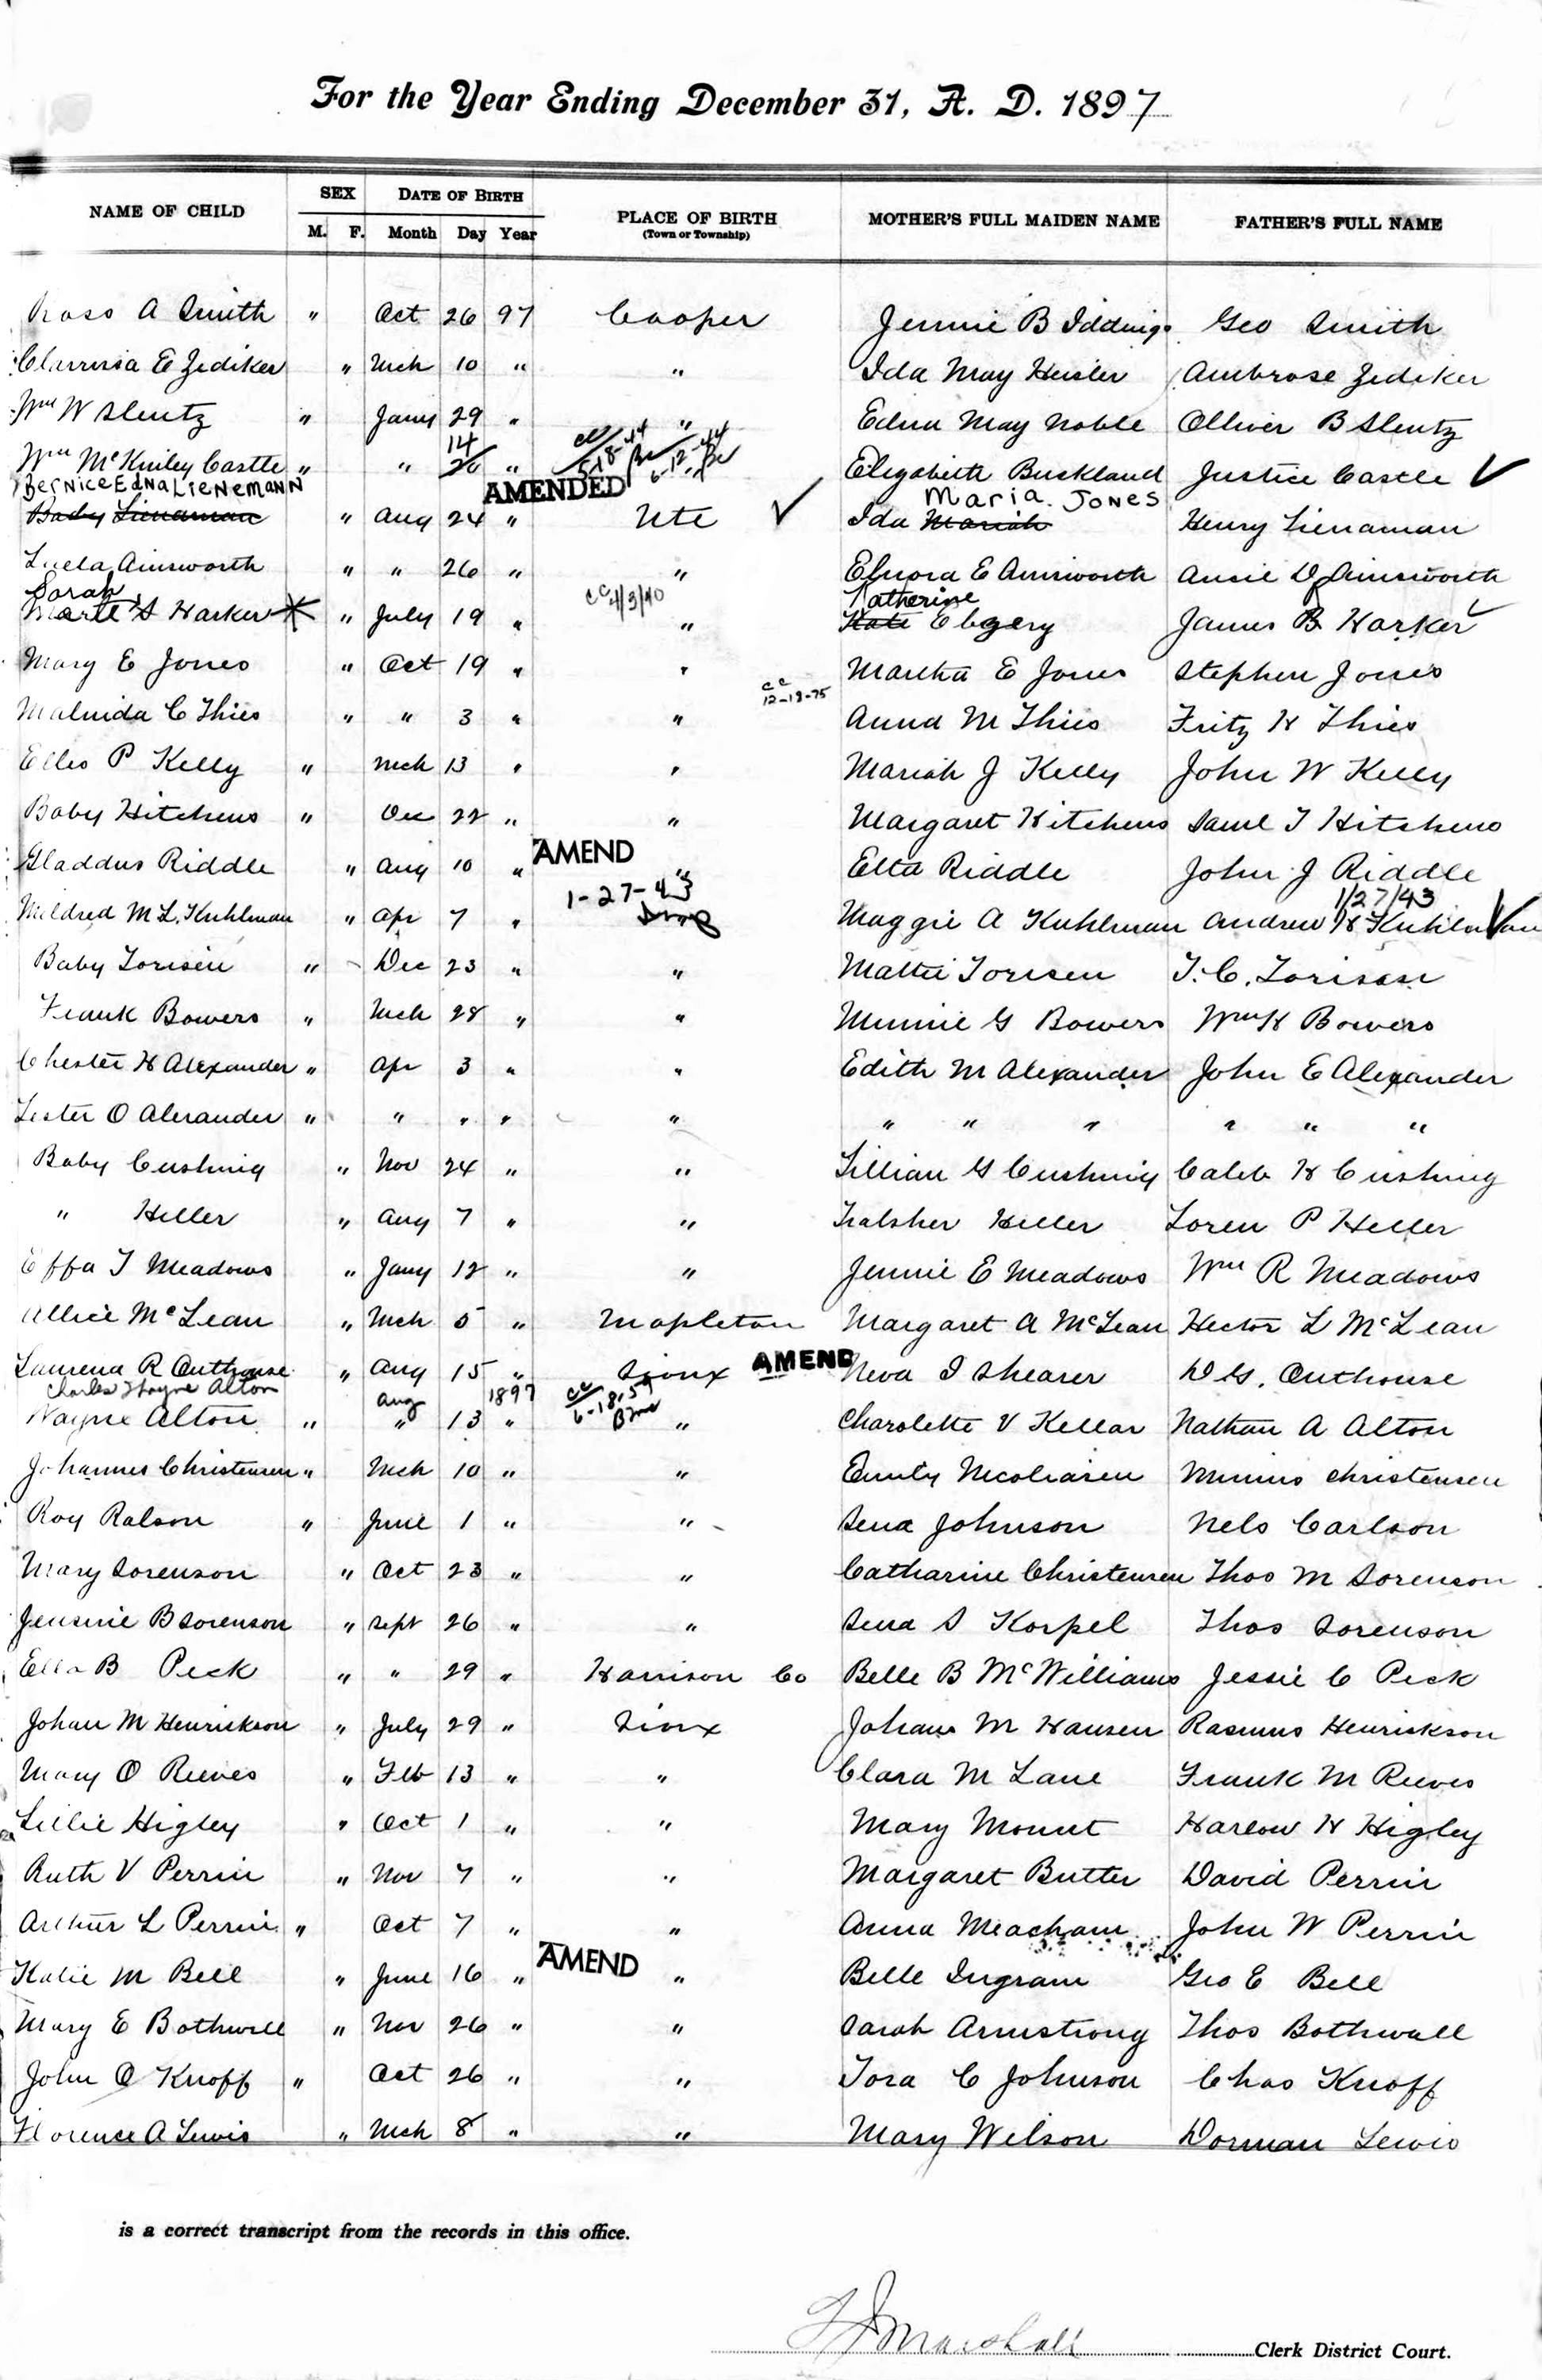 For the Year Ending December 31, A. D. 1897
NAME OF CHILD SEX DATE OF BIRTH PLACE OF BIRTH MOTHER'S FULL MAIDEN NAME FATHER'S FULL NAME
M. F. Month Day Year (Town or Township)
Ross A Smith " Oct 26 97 Cooper Jennie B Iddings Geo Smith
E Zediker " Mch 10 " " Ida May Heisler Ambrose Zediker
Wm W Slentz " Jany 29 " " Edna May Noble Olliver B Slentz
14 cc 5-18-44 6-12-44
Wm McKinley Castle " " 26 " Elizabeth Buckland Justice Castle ✓
Bernice Edna Lienemann AMENDED Maria Jones
Baby Lienaman " Aug 24 " Ute ✓ Ida Mariah Henry Lienaman
Luela Ainsworth " " 26 " " Elnora E Ainsworth Ansil D Ainsworth
Sarah cc 4/3/40 Katherine
S Harker " July 19 " " Kate James B Harker ✓
Mary E Jones " Oct 19 " " Martha E Jones Stephen Jones
cc 12-18-75
Malinda C Thies " " 3 " " Anna M Thies Fritz H Thies
Elles P Kelly " Mch 13 " " Mariah J Kelly John W Kelly
Baby Hitchens " Dec 22 " " Margaret Hitchens Saml T Hitchens
AMEND
Gladdus Riddle " Aug 10 " " Elta Riddle John J Riddle
1-27-43 1/27/43
Mildred M L. Kuhlman " Apr 7 " Maggie A Kuhlman Andrew H Kuhlman ✓
Baby Torisen " Dec 23 " " Mattie Torisen T. C. Torison
Frank Bowers " Mch 28 " " Minnie G Bowers Wm H Bowers
Chester H Alexander " Apr 3 " " Edith M Alexander John E Alexander
Lester O Alexander " " " " " " " " " " "
Baby Cushing " Nov 24 " " Lillian G Cushing Caleb H Cushing
" Heller " Aug 7 " " Heller Loren P Heller
Effa T Meadows " Jany 12 " " Jennie E Meadows Wm R Meadows
Allice McLean " Mch 5 " Mapleton Margaret A McLean Hector L McLean
Laurena R Outhouse " Aug 15 " Sioux AMEND Neva I Shearer D G. Outhouse
Charles Wayne Alton Aug 1897 cc 6-18-57
Wayne Alton " " 13 " " Charolette V Kellar Nathan A Alton
Johannes Christensen " Mch 10 " " Emily Nicoliasen Minius Christensen
Roy Ralson " June 1 " " Sena Johnson Nels Carlson
Mary Sorenson " Oct 23 " " Catharine Christensen Thos M Sorenson
Jensine B Sorenson " Sept 26 " " Sena S Korpel Thos Sorenson
Ella B Peck " " 29 " Harrison Co Belle B McWilliams Jessie C Peck
Johan M Henrickson " July 29 " Sioux Johan M Hansen Rasmus Henrickson
Mary O Reeves " Feb 13 " " Clara M Lane Frank M Reeves
Lillie Higley " Oct 1 " " Mary Mount Harlow H Higley
Ruth V Perrin " Nov 7 " " Margaret Butter David Perrin
Arthur L Perrin " Oct 7 " " Anna Meacham John W Perrin
AMEND
Katie M Bell " June 16 " " Belle Ingram Geo E Bell
Mary E Bothwell " Nov 26 " " Sarah Armstrong Thos Bothwell
John O Knoff " Oct 26 " " Tora C Johnson Chas Knoff
Florence A Lewis " Mch 8 " " Mary Wilson Dorman Lewis
is a correct transcript from the records in this office.
Marshall Clerk District Court.